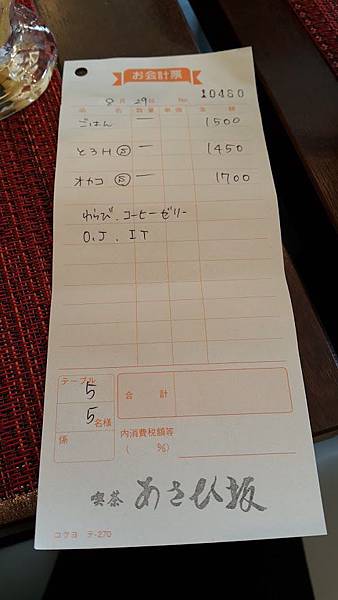 お会計票
8月29日 No. 10480
品名 数量 単価 金額
ごはん 一 1500
とろH 一 1450
オカコ 一 1700
わらび.コーヒーゼリー
O.J. IT
テーブル 5
5名様
係
合計
内消費税額等
( %)
喫茶 あさひ坂
コクヨ テ-270